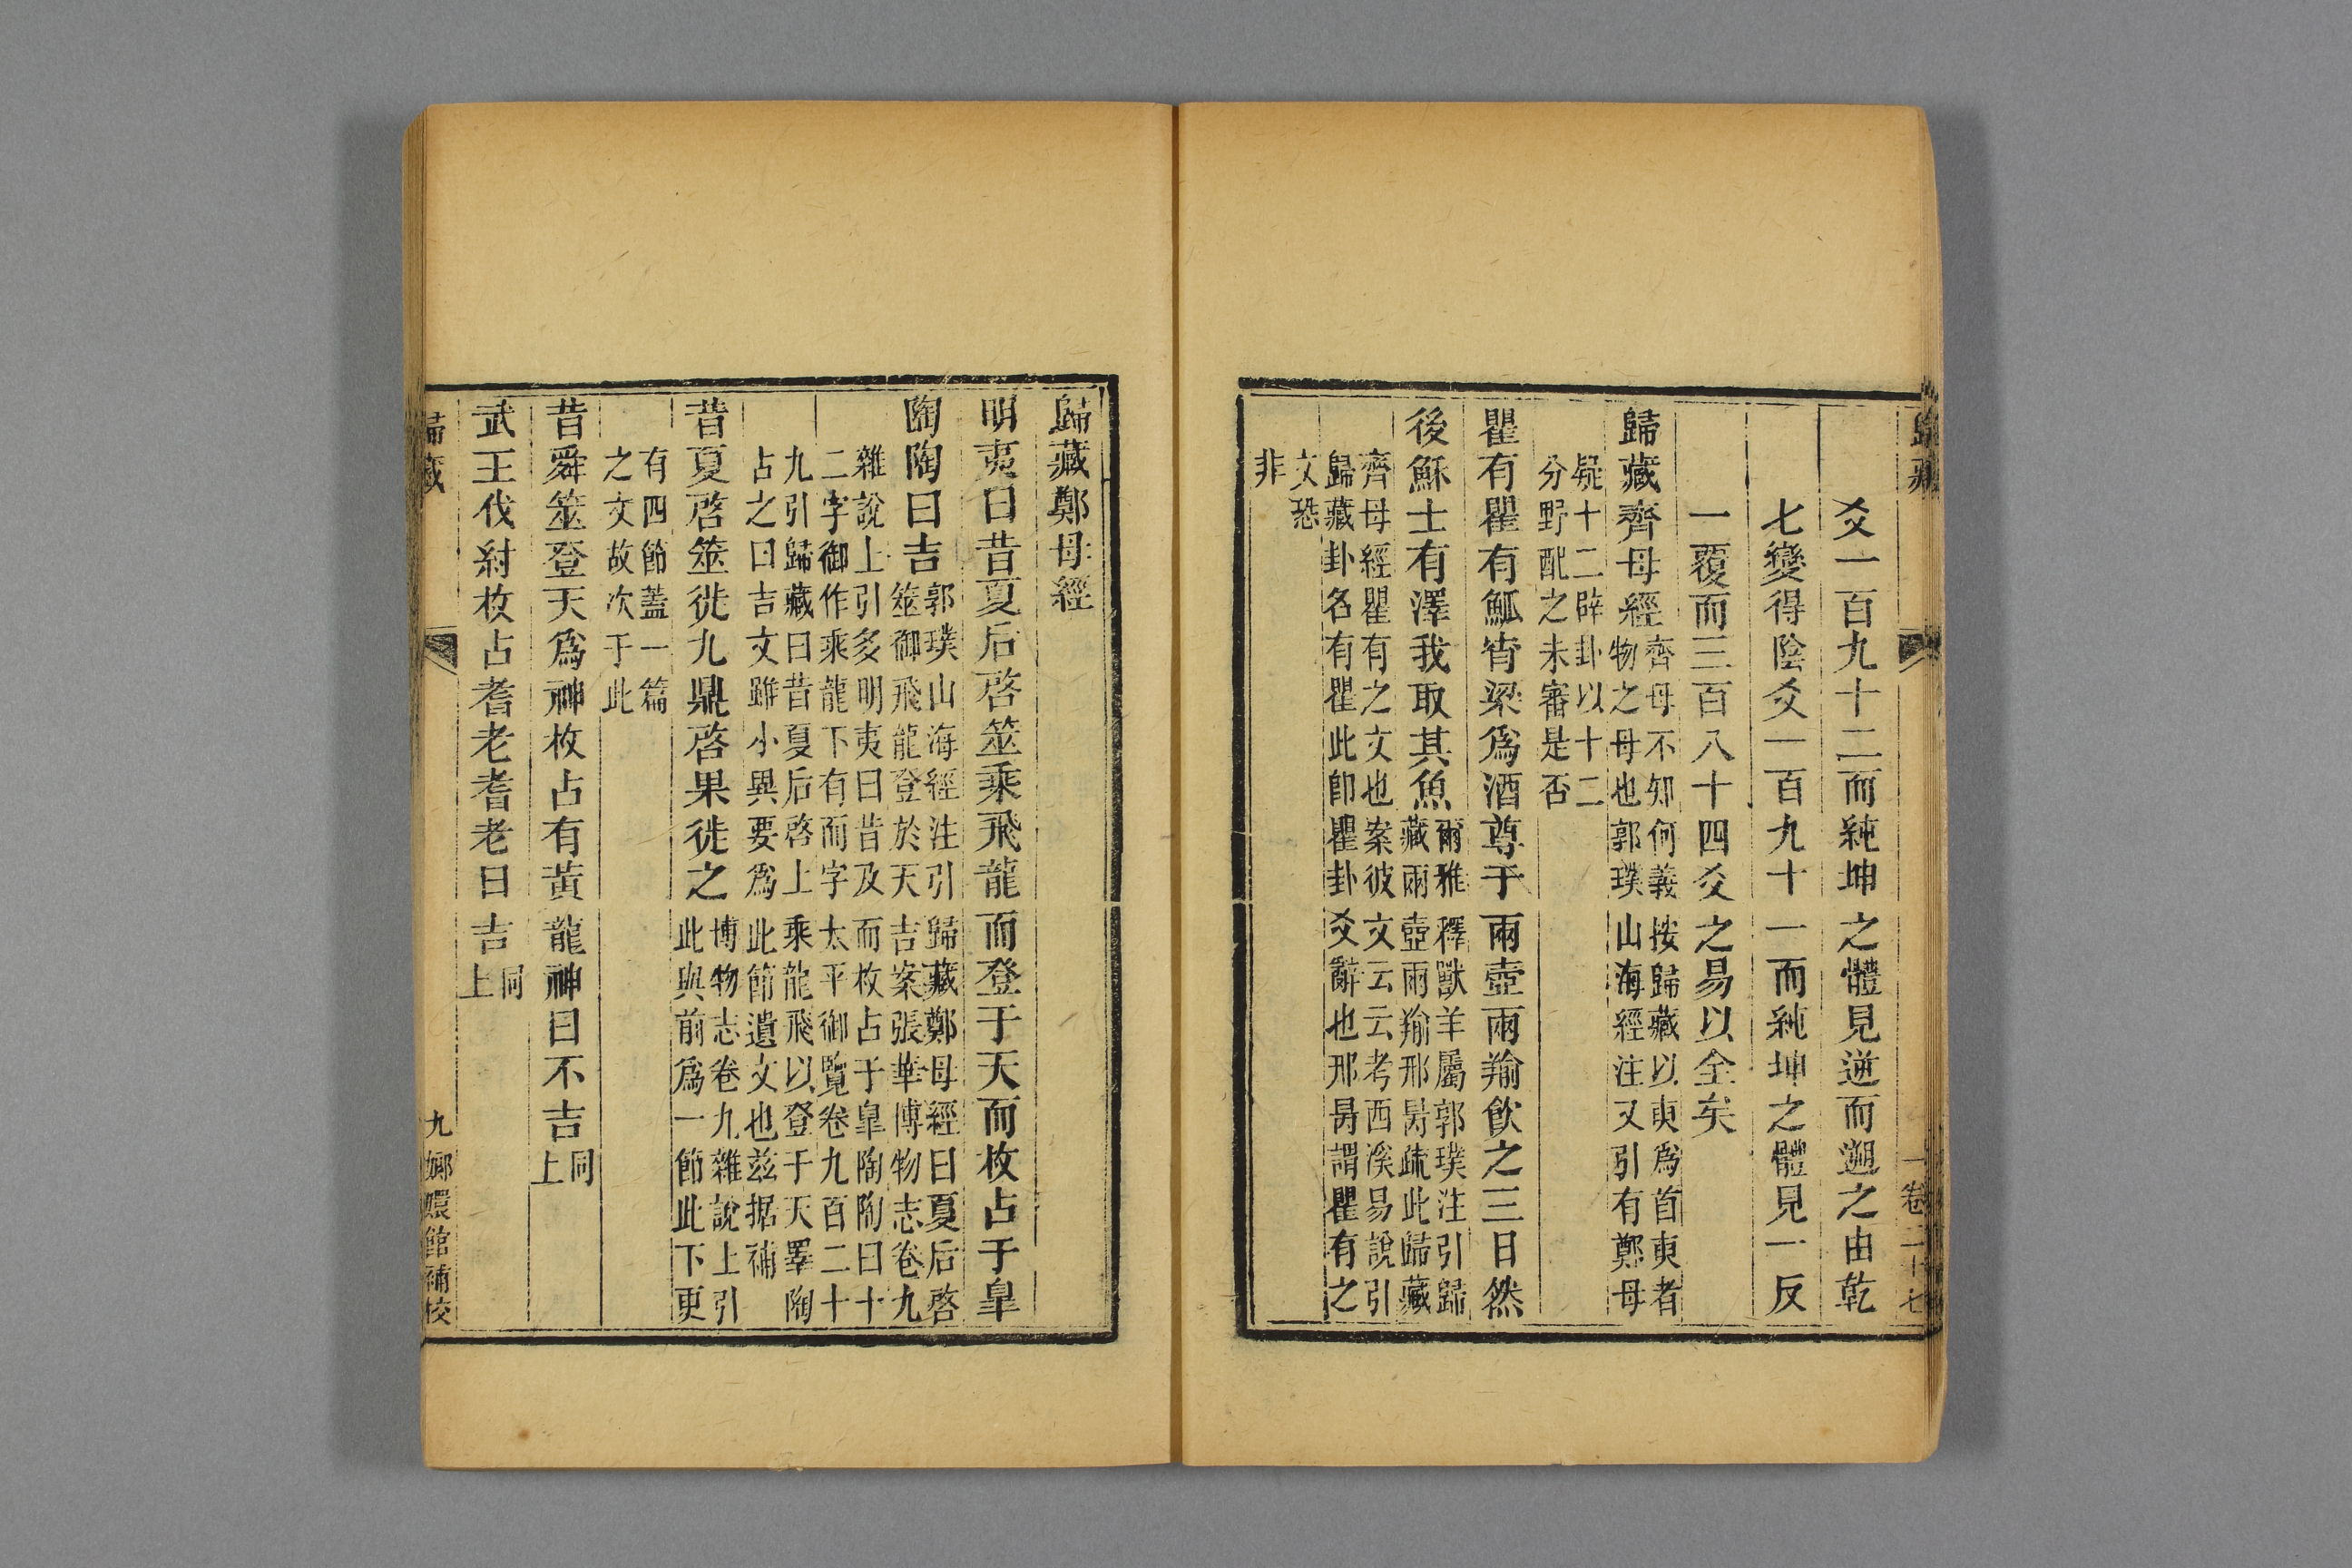 歸藏
卷二十七
爻一百九十二而純坤之體見逆而遡之由乾
七變得陰爻一百九十一而純坤之體見一反
一覆而三百八十四爻之易以全矣
歸藏齊母經齊母不知何義按歸藏以㢴爲首㢴者
物之母也郭璞山海經注又引有鄭母
疑十二辟卦以十二
分野配之未審是否
瞿有瞿有觚宵梁爲酒尊于兩壺兩羭飮之三日然
後穌士有澤我取其魚爾雅釋獸羊屬郭璞注引歸
藏兩壺兩羭邢昺疏此歸藏
齊母經瞿有之文也案彼文云云考西溪易說引
歸藏卦名有瞿此卽瞿卦爻辭也邢昺謂瞿有之
文恐
非
歸藏鄭母經
明夷曰昔夏后啓筮乘飛龍而登于天而枚占于皐
陶陶曰吉郭璞山海經注引歸藏鄭母經曰夏后啓
筮御飛龍登於天吉案張華博物志卷九
雜說上引多明夷曰昔及而枚占于皐陶陶曰十
二字御作乘龍下有而字太平御覽卷九百二十
九引歸藏曰昔夏后啓上乘龍飛以登于天睪陶
占之曰吉文雖小異要爲此節遺文也兹据補
昔夏啓筮徙九鼎啓果徙之博物志卷九雜說上引
此與前爲一節此下更
有四節蓋一篇
之文故次于此
昔舜筮登天爲神枚占有黃龍神曰不吉同
上
武王伐紂枚占耆老耆老曰吉同
上
歸藏
九嫏嬛館補校